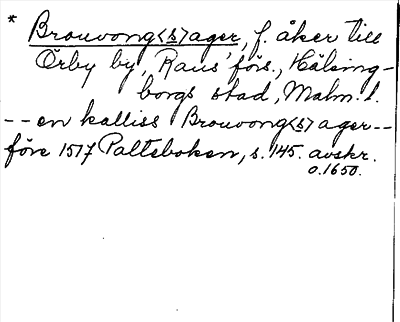 * Brouvong<s>ager, f. åker till
Örby by, Raus' förs., Hälsing-
borgs stad, Malm. l.
-- en kalliss Brouvong<s> ager --
före 1517 Paltseboken, s. 145. avskr.
o. 1650.